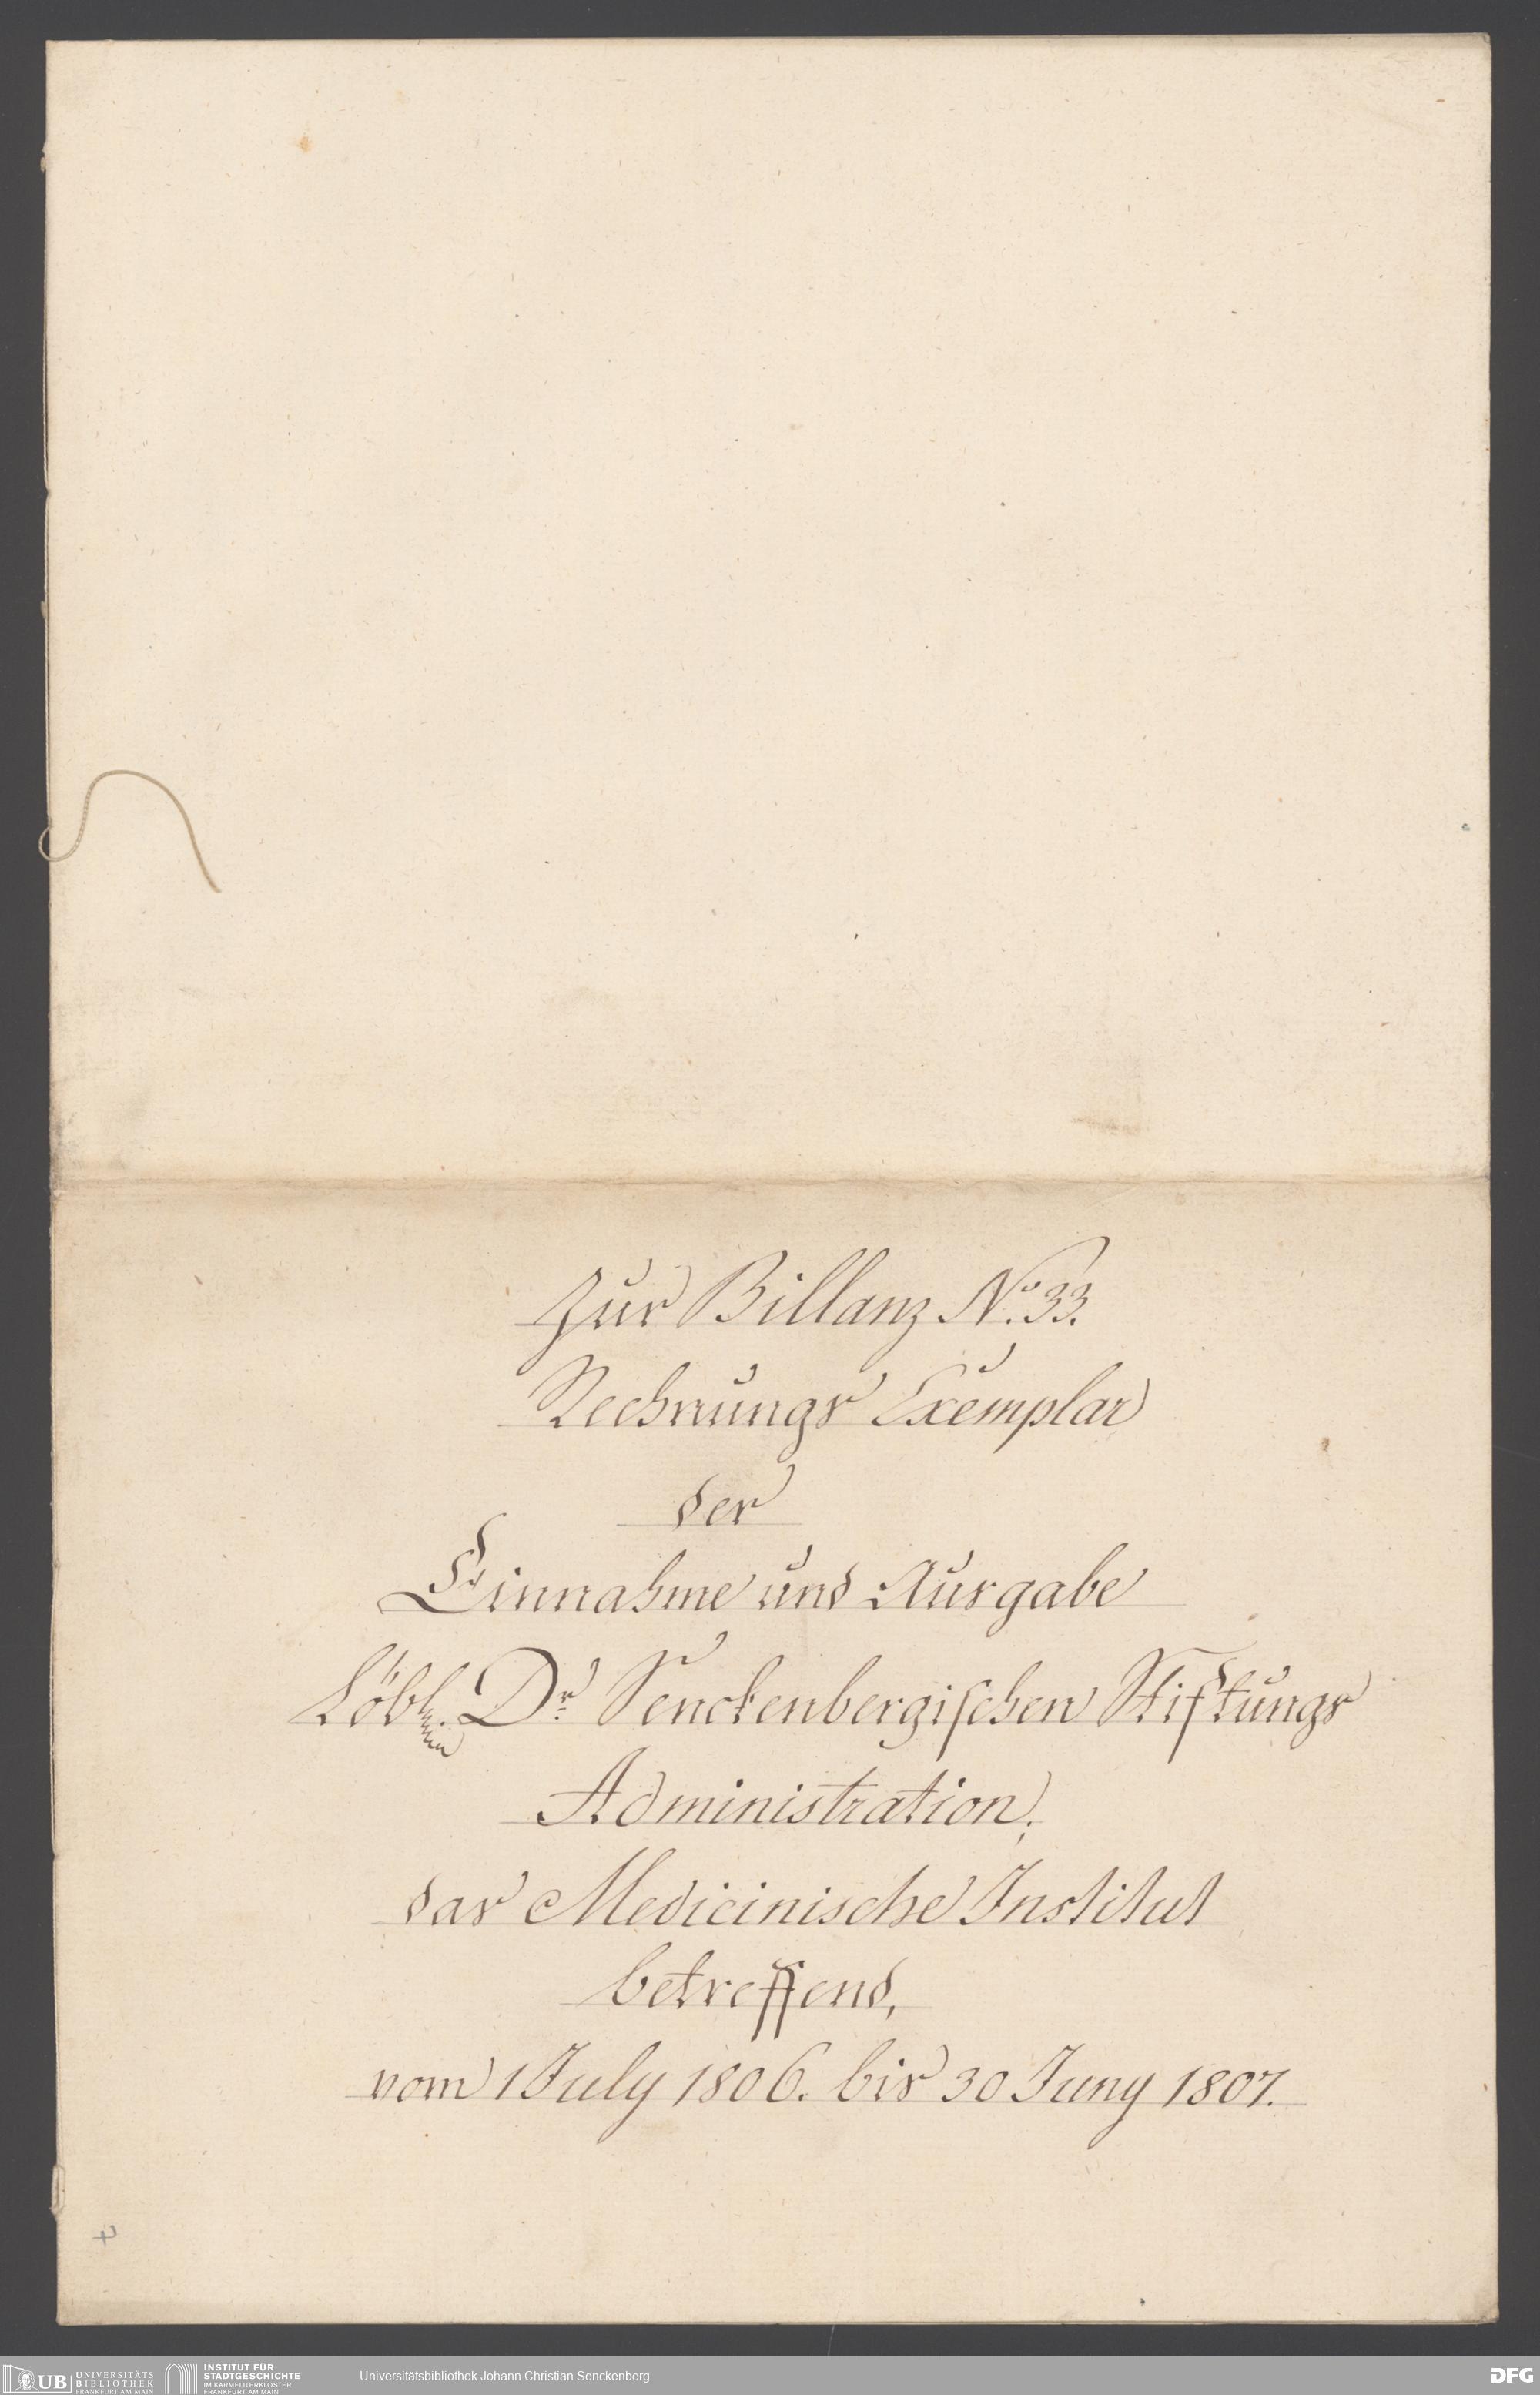 Zur Billanz No. 33.
Rechnungs Exemplar
der
Einnahme und Ausgabe
Löbl. Dr. Senckenbergischen Stiftungs
Administration,
das Medicinische Institut
betreffend,
vom 1 July 1806. bis 30 Juny 1807.
4
UB UNIVERSITÄTS
BIBLIOTHEK
FRANKFURT AM MAIN
INSTITUT FÜR
STADTGESCHICHTE
IM KARMELITERKLOSTER
FRANKFURT AM MAIN
Universitätsbibliothek Johann Christian Senckenberg
DFG